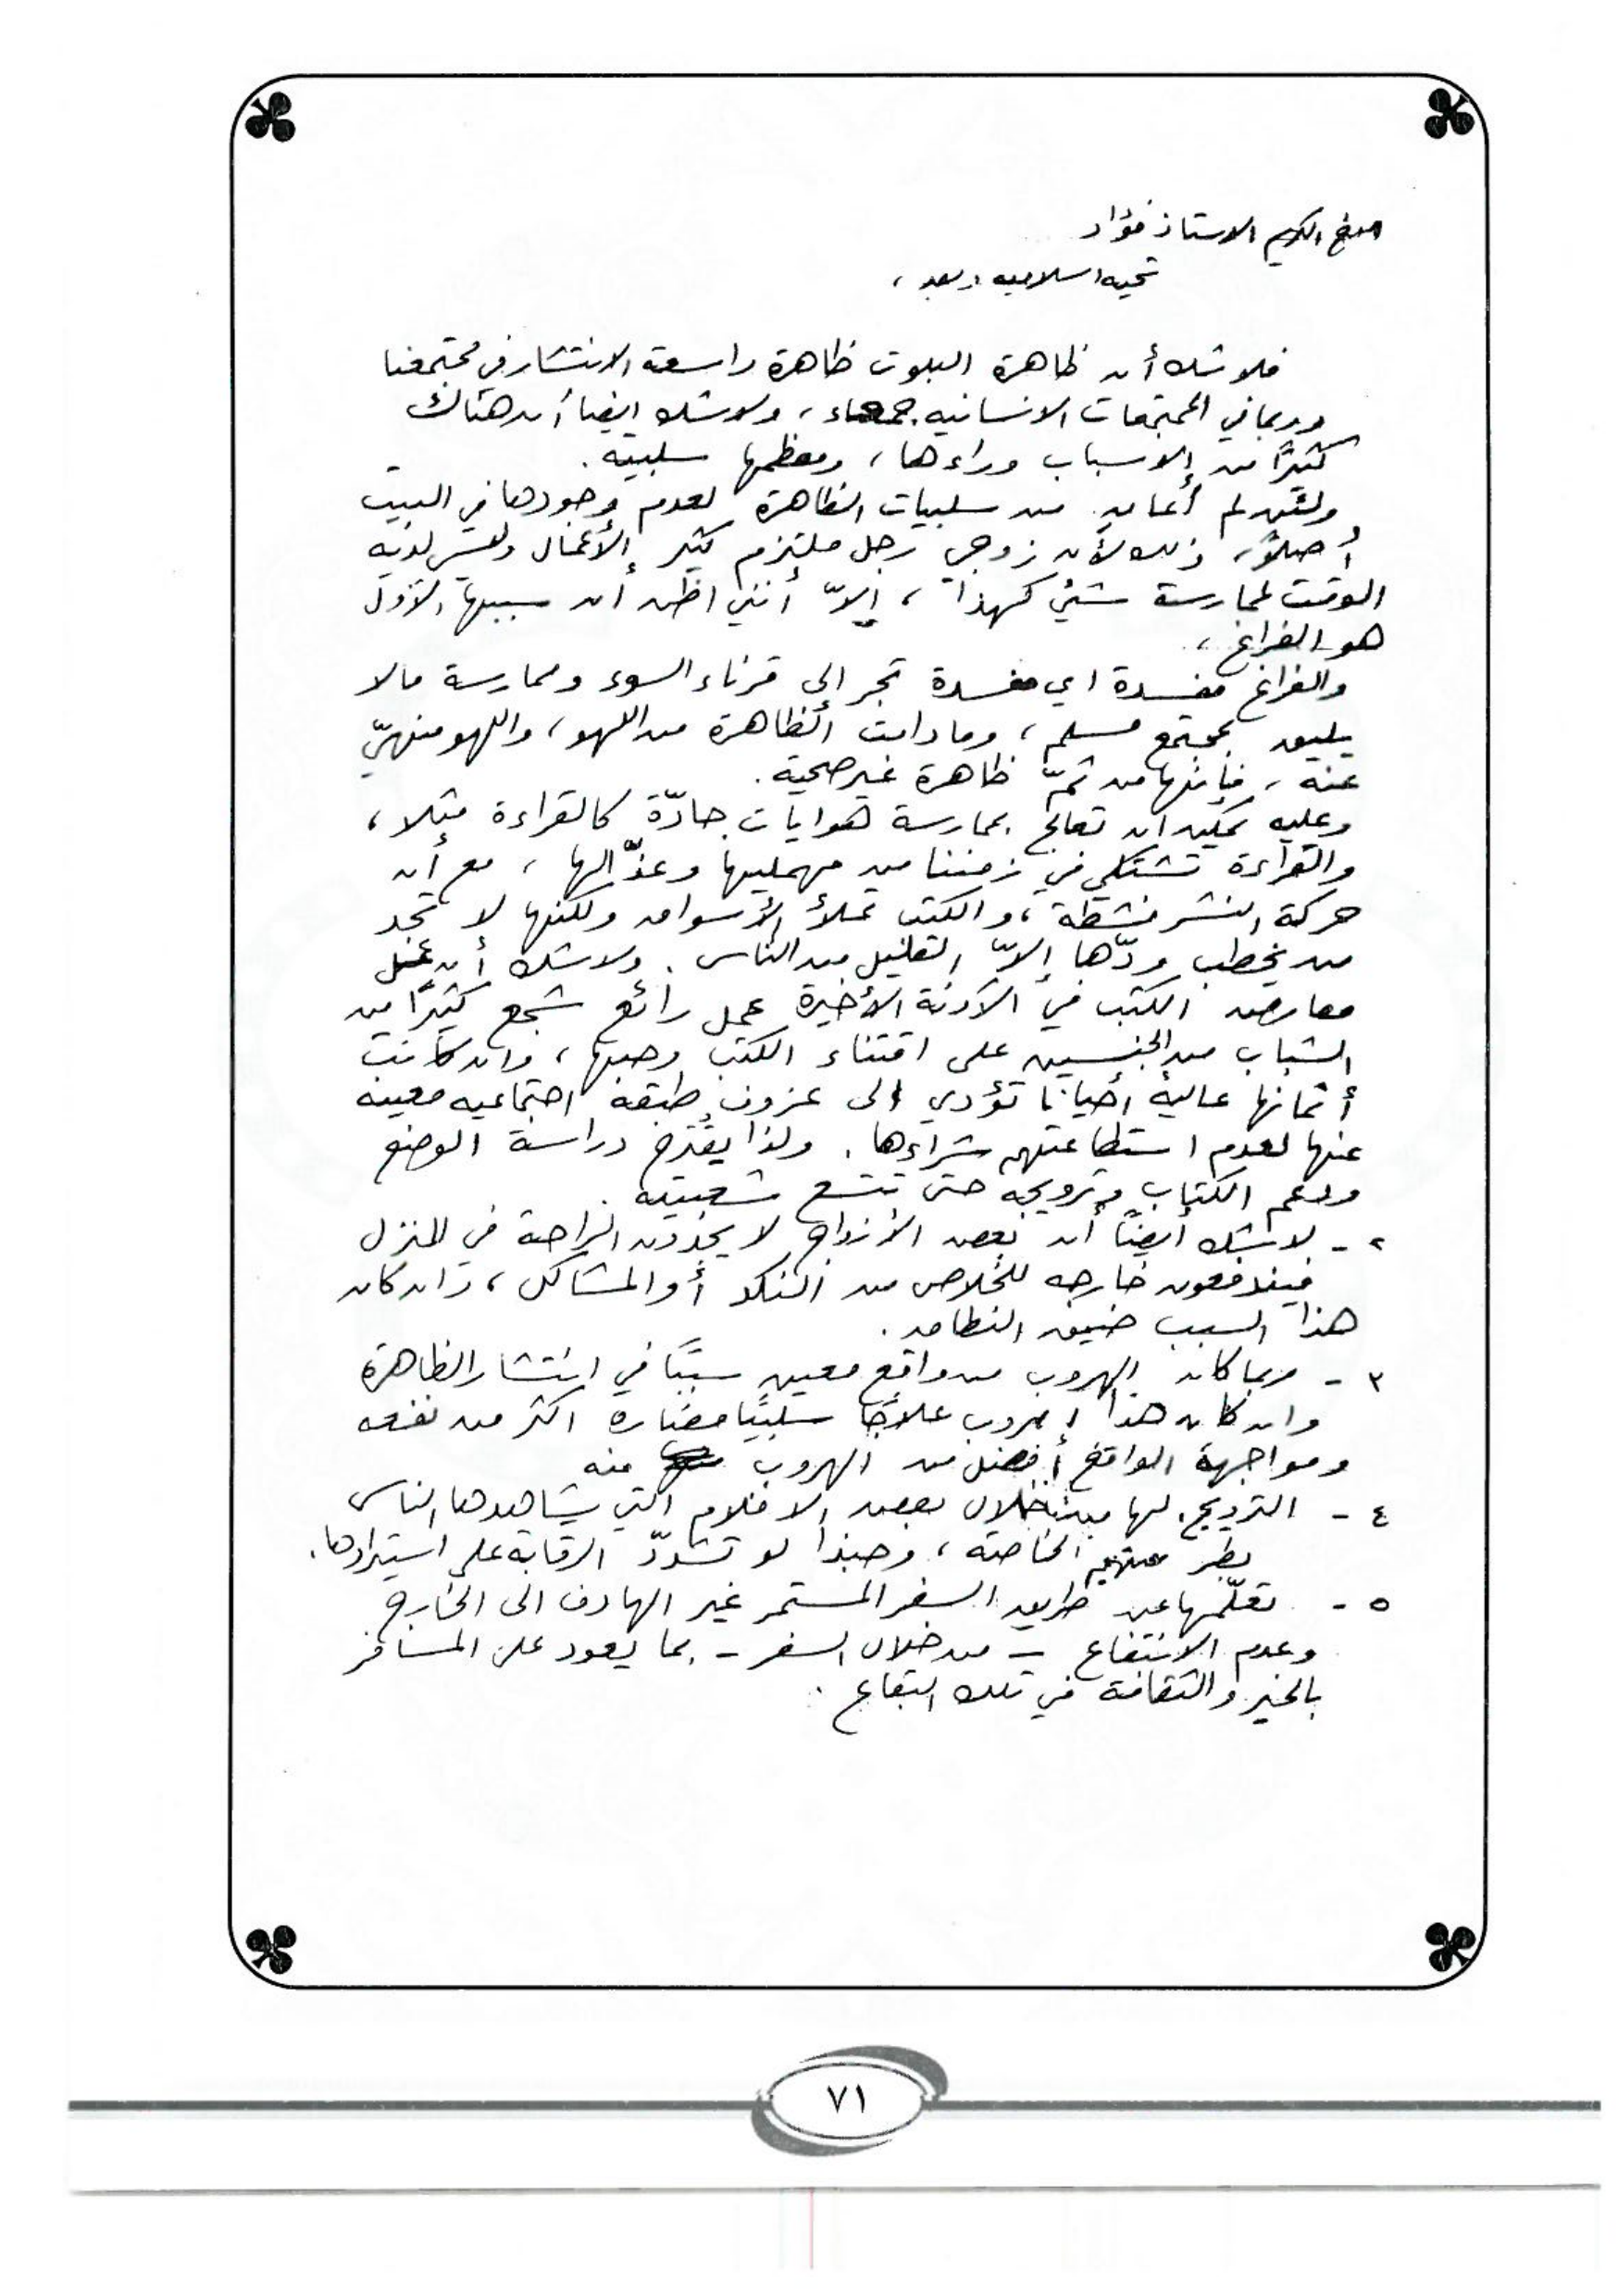 الاخ الكريم الاستاذ فؤاد
تحية اسلامية وبعد ،
فلا شك أن ظاهرة البلوت ظاهرة واسعة الانتشار في مجتمعنا
وربما في المجتمعات الانسانيه جمعاء ، ولا شك ايضا أن هناك
كثيرًا من الاسباب وراءها ، ومعظمها سلبية .
ولئن لم أعان من سلبيات الظاهرة لعدم وجودها في البيت
أصلاً ، ذلك لأن زوجي رجل ملتزم كثير الأعمال وليس لديه
الوقت لممارسة شيء كهذا ، إلاّ أنني اظن أن سببها الأول
هو الفراغ ،
والفراغ مفسدة اي مفسدة تجر إلى قرناء السوء وممارسة مالا
يليق بمجتمع مسلم ، وما دامت الظاهرة من اللهو ، واللهو منهيّ
عنه ، فإنها من ثمّ ظاهرة غير صحية .
وعليه يمكن ان تعالج بممارسة هوايات جادّة كالقراءة مثلا ،
والقراءة تشتكي في زمننا من مهمليها وعذّالها ، مع أن
حركة النشر نشطة ، والكتب تملأ الأسواق ولكنها لا تجد
من يخطب ودّها إلاّ القليل من الناس . ولا شك أن عمل
معارض الكتب في الآونة الأخيرة عمل رائع شجع كثيرًا من
الشباب من الجنسين على اقتناء الكتب وحبها ، وان كانت
أثمانها عالية أحيانا تؤدي الى عزوف طبقة اجتماعيه معينه
عنها لعدم استطاعتهم شراءها . ولذا يقترح دراسة الوضع
ودعم الكتاب وترويجه حتى تتسع شعبيته .
٢ - لا شك أيضًا أن بعض الأزواج لا يجدون الراحة في المنزل
فيندفعون خارجه للخلاص من النكد أو المشاكل ، وان كان
هذا السبب ضيق النطاق .
٣ - ربما كان الهروب من واقع معين سببًا في انتشار الظاهرة
وان كان هذا الهروب علاجًا سلبيًا مضاره اكثر من نفعه
ومواجهة الواقع أفضل من الهروب منه
٤ - الترويج لها من خلال بعض الافلام التي يشاهدها الناس
بطريقتهم الخاصة ، وحبذا لو تشدّد الرقابة على استيرادها .
٥ - تعلّمها عن طريق السفر المستمر غير الهادف الى الخارج
وعدم الانتفاع - من خلال السفر - بما يعود على المسافر
بالخير والثقافة في تلك البقاع .
٧١